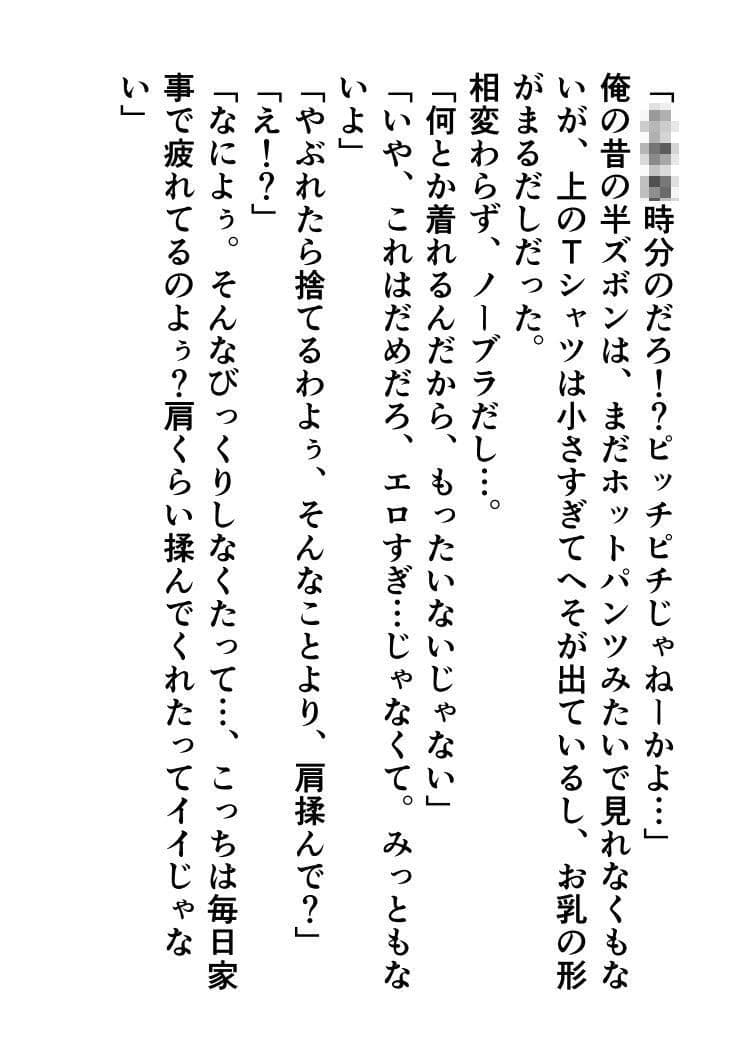 「時分のだろ！？ピッチピチじゃねーかよ…」
俺の昔の半ズボンは、まだホットパンツみたいで見れなくもな
いが、上のＴシャツは小さすぎてへそが出ているし、お乳の形
がまるだしだった。
相変わらず、ノーブラだし…。
「何とか着れるんだから、もったいないじゃない」
「いや、これはだめだろ、エロすぎ…じゃなくて。みっともな
いよ」
「やぶれたら捨てるわよぅ、そんなことより、肩揉んで？」
「え！？」
「なによぅ。そんなびっくりしなくたって…、こっちは毎日家
事で疲れてるのよぅ？肩くらい揉んでくれたってイイじゃな
い」